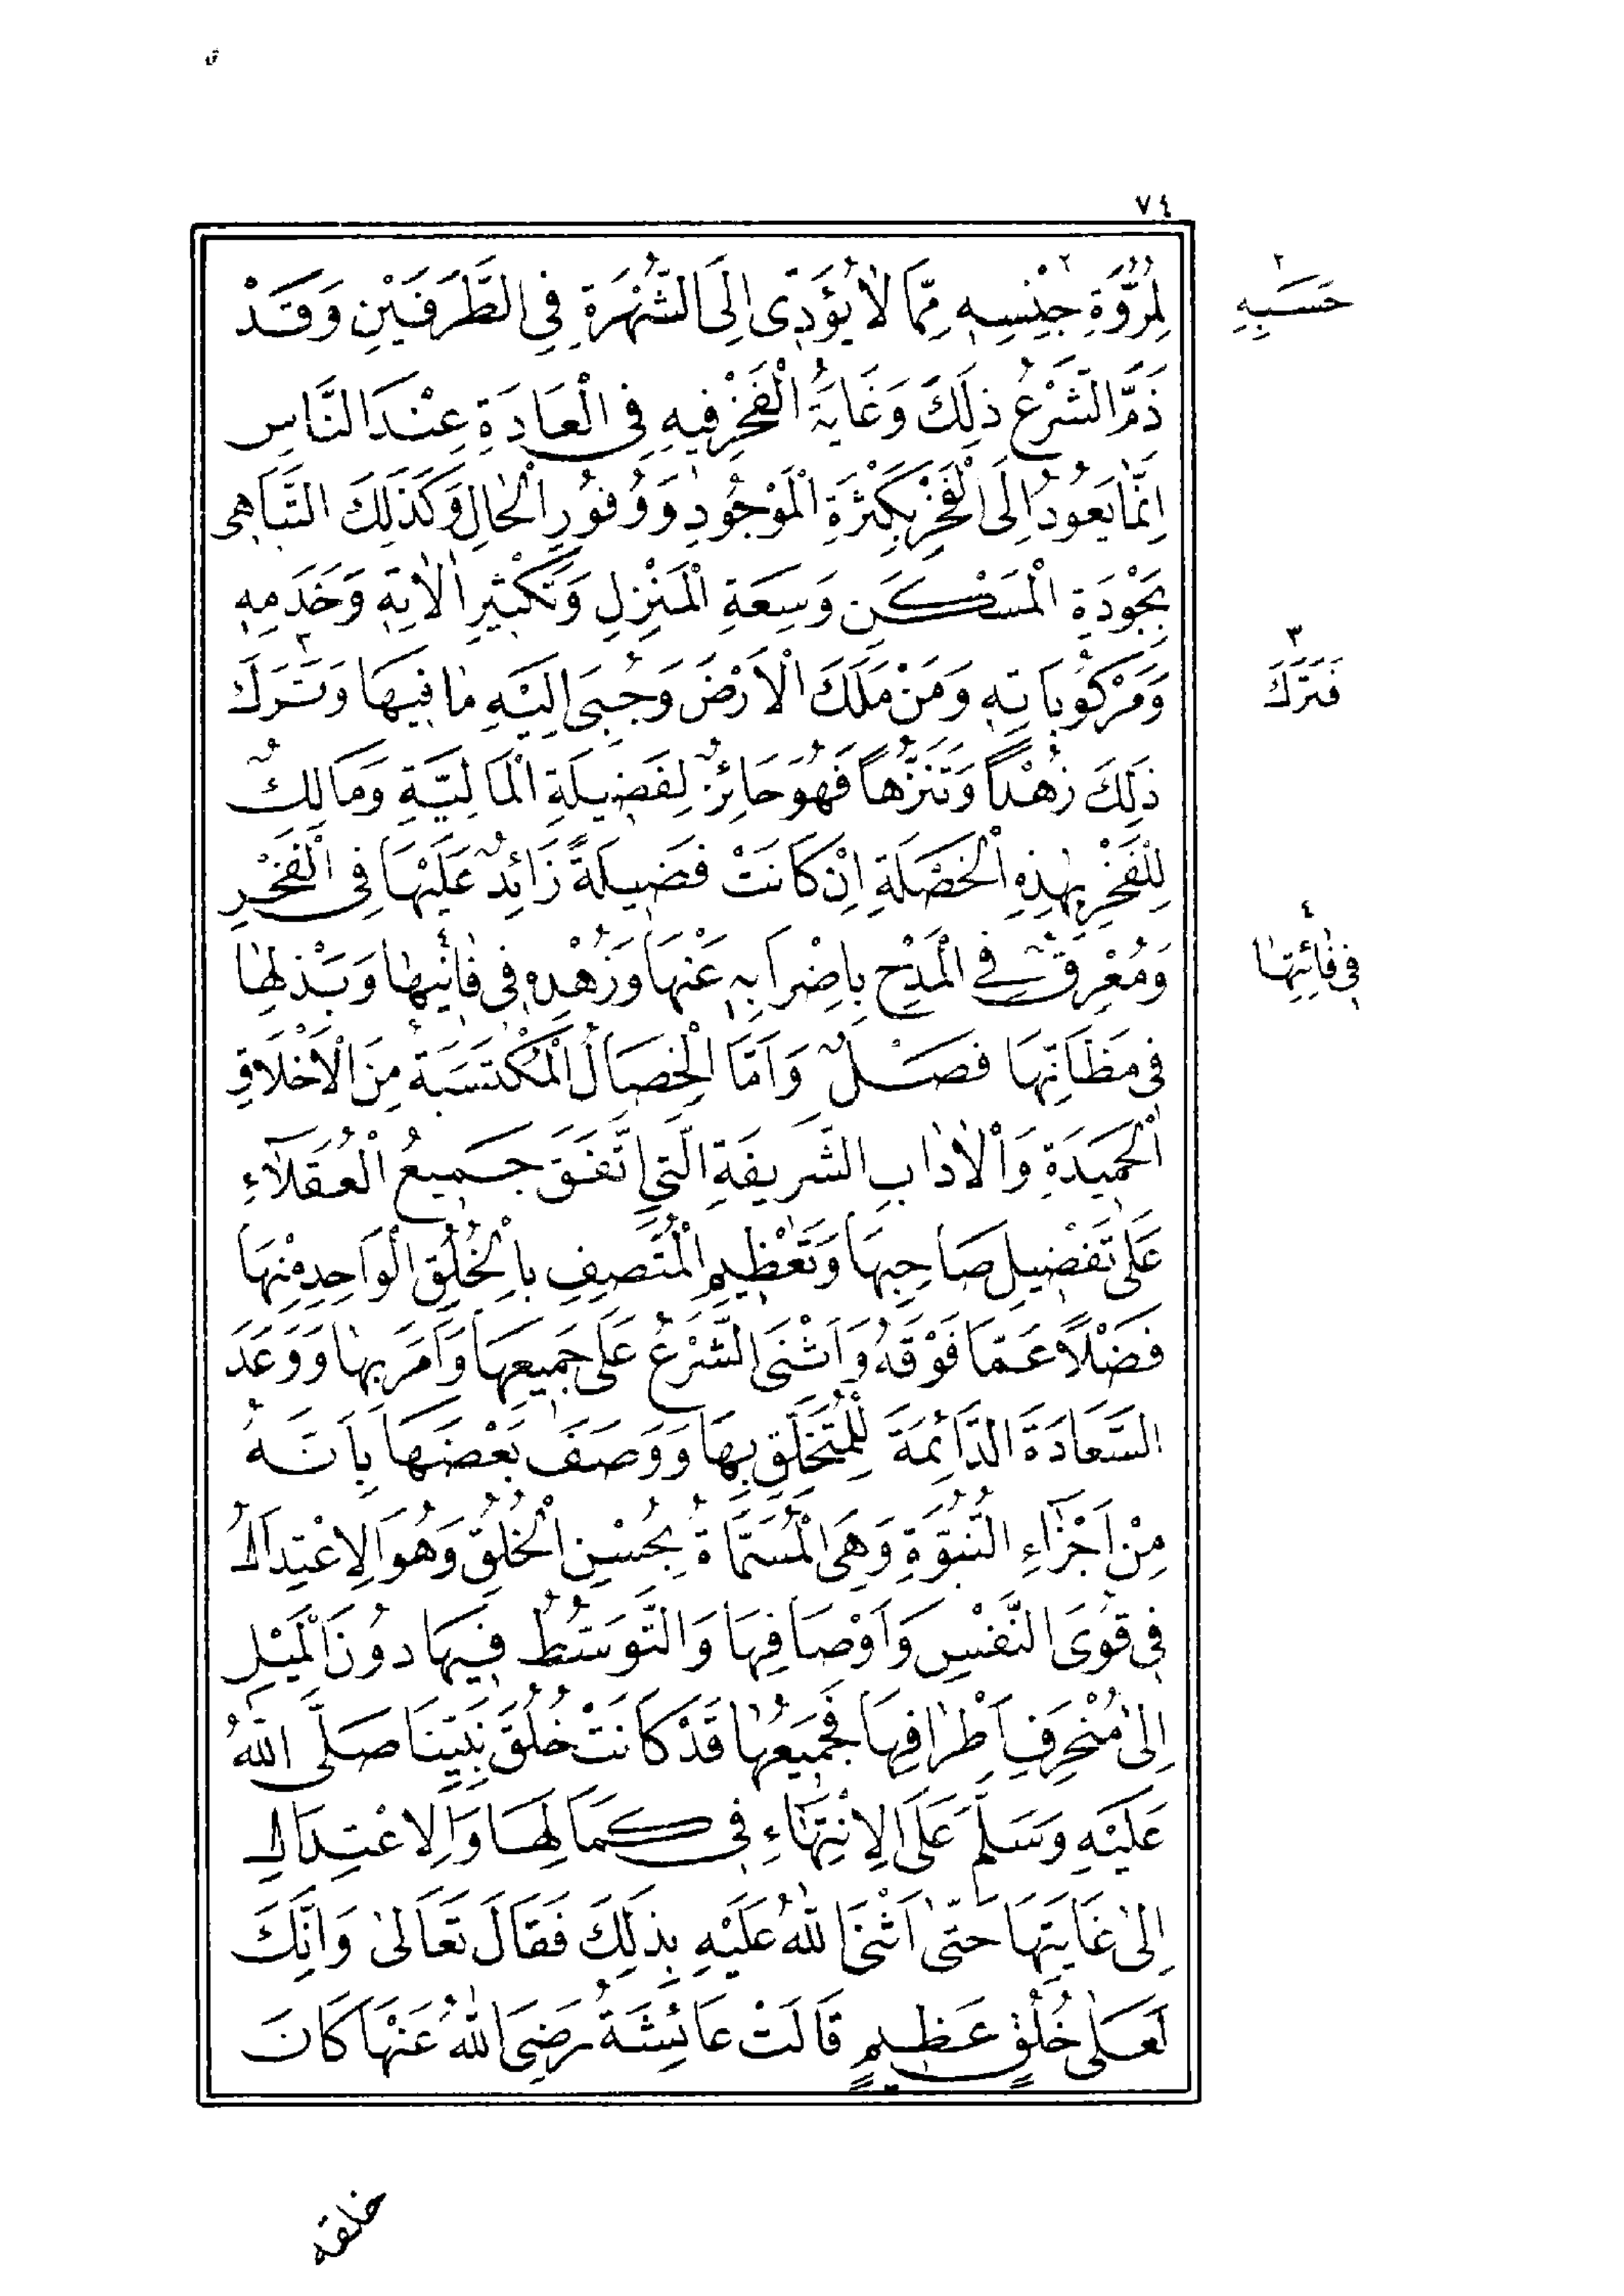 ٧٤
لِمُرُوَّةِ جِنْسِهِ مِمَّا لَا يُؤَدِّى اِلَى الشُّهْرَةِ فِى الطَّرَفَيْنِ وَقَدْ
ذَمَّ الشَّرْعُ ذٰلِكَ وَغَايَةُ الْفَخْرِ فِيهِ فِى الْعَادَةِ عِنْدَ النَّاسِ
اِنَّمَا يَعُودُ اِلَى الْفَخْرِ بِكَثْرَةِ الْمَوْجُودِ وَوُفُورِ الْحَالِ وَكَذٰلِكَ التَّبَاهِى
بِجَوْدَةِ الْمَسْكَنِ وَسِعَةِ الْمَنْزِلِ وَتَكْثِيرِ اٰلَاتِهِ وَخَدَمِهِ
وَمَرْكُوبَاتِهِ وَمَنْ مَلَكَ الْاَرْضَ وَجُبِىَ اِلَيْهِ مَا فِيهَا وَتَرَكَ
ذٰلِكَ زُهْدًا وَتَنَزُّهًا فَهُوَ حَائِزٌ لِفَضِيلَةِ الْمَالِيَّةِ وَمَالِكٌ
لِلْفَخْرِ بِهٰذِهِ الْخَصْلَةِ اِنْ كَانَتْ فَضِيلَةً زَائِدٌ عَلَيْهَا فِى الْفَخْرِ
وَمُعْرِقٌ فِى الْمَدْحِ بِاِضْرَابِهِ عَنْهَا وَزُهْدِهِ فِى فَانِيهَا وَبَذْلِهَا
فِى مَظَانِّهَا فَصْلٌ وَاَمَّا الْخِصَالُ الْمُكْتَسَبَةُ مِنَ الْاَخْلَاقِ
الْحَمِيدَةِ وَالْاٰدَابِ الشَّرِيفَةِ الَّتِى اتَّفَقَ جَمِيعُ الْعُقَلَاءِ
عَلٰى تَفْضِيلِ صَاحِبِهَا وَتَعْظِيمِ الْمُتَّصِفِ بِالْخُلُقِ الْوَاحِدِ مِنْهَا
فَضْلًا عَمَّا فَوْقَهُ وَاَثْنَى الشَّرْعُ عَلٰى جَمِيعِهَا وَاَمَرَ بِهَا وَوَعَدَ
السَّعَادَةَ الدَّائِمَةَ لِلْمُتَخَلِّقِ بِهَا وَوَصَفَ بَعْضَهَا بِاَنَّهُ
مِنْ اَجْزَاءِ النُّبُوَّةِ وَهِىَ الْمُسَمَّاةُ بِحُسْنِ الْخُلُقِ وَهُوَ الِاعْتِدَالُ
فِى قُوَى النَّفْسِ وَاَوْصَافِهَا وَالتَّوَسُّطُ فِيهَا دُونَ الْمَيْلِ
اِلٰى مُنْحَرِفِ اَطْرَافِهَا فَجَمِيعُهَا قَدْ كَانَتْ خُلُقَ نَبِيِّنَا صَلَّى اللّٰهُ
عَلَيْهِ وَسَلَّمَ عَلَى الِانْتِهَاءِ فِى كَمَالِهَا وَالِاعْتِدَالِ
اِلٰى غَايَتِهَا حَتّٰى اَثْنَى اللّٰهُ عَلَيْهِ بِذٰلِكَ فَقَالَ تَعَالٰى وَاِنَّكَ
لَعَلٰى خُلُقٍ عَظِيمٍ قَالَتْ عَائِشَةُ رَضِىَ اللّٰهُ عَنْهَا كَانَ
خلقه
٢
حَسَبِهِ
٣
فَتَرَكَ
٤
فِى فَائِتِهَا